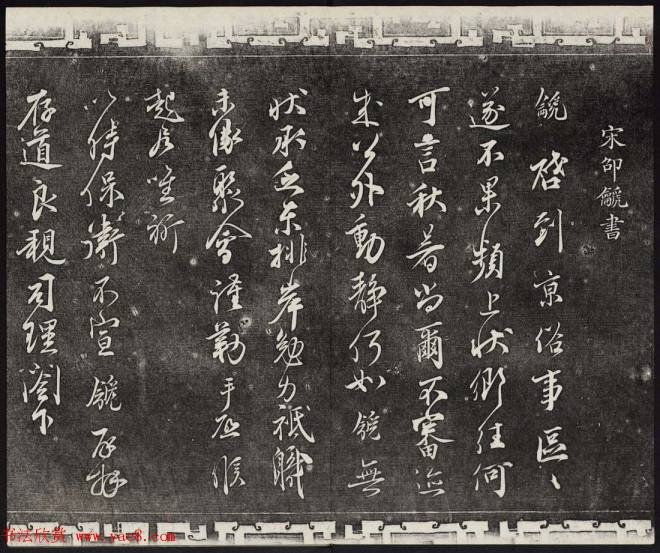 宋邵䶵書
䶵啓到京俗事區〻
遂不果頻上狀鄉往何
可言秋暑尚爾不審邇
來公外動靜何如䶵無
狀承乏東排岸勉力祗職
未緣聚會謹勒手啓候
起居唯祈
以時保衛不宣䶵再拜
存道良親司理閣下
书法欣赏 www.yac8.com